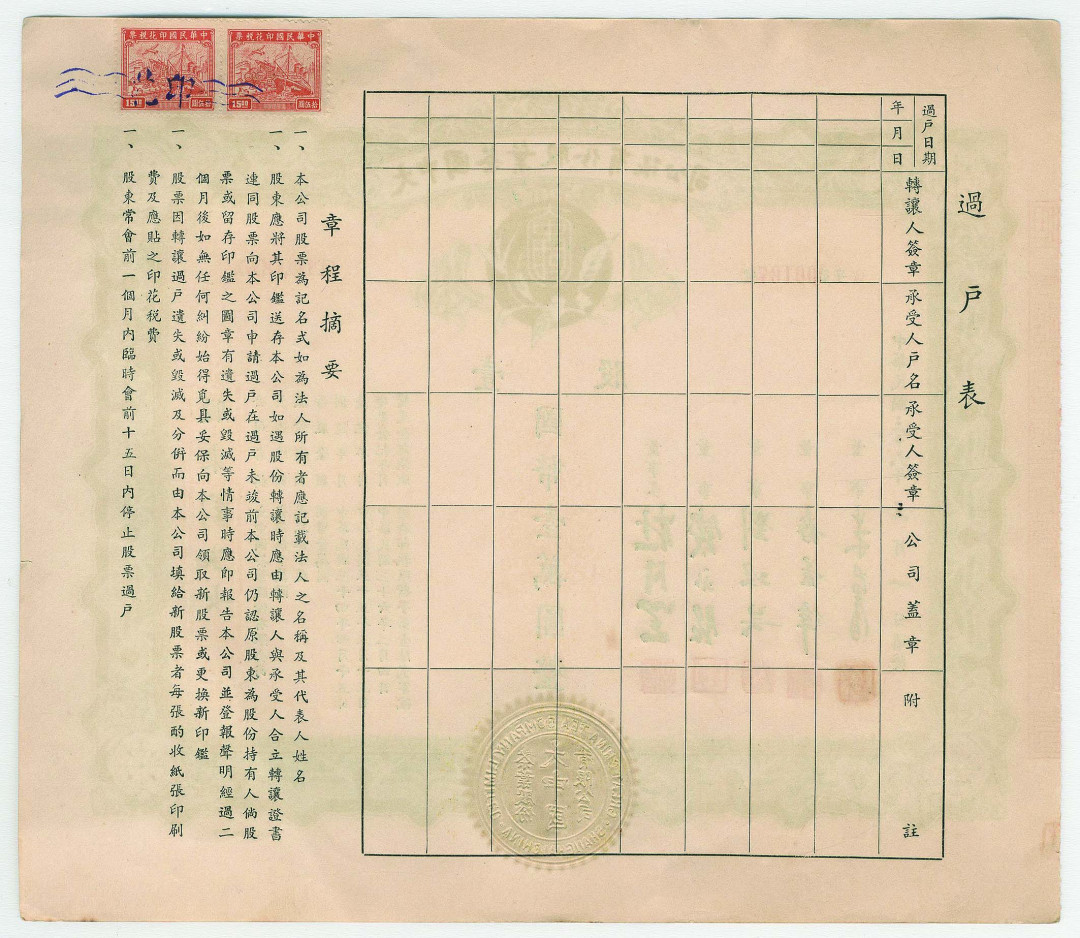 過戶表
過戶日期
年
月
日
轉讓人簽章
承受人戶名
承受人簽章
公司蓋章
附註
章程摘要
一、本公司股票為記名式如為法人所有者應記載法人之名稱及其代表人姓名
一、股東應將其印鑑送存本公司如遇股份轉讓時應由轉讓人與承受人合立轉讓證書
連同股票向本公司申請過戶在過戶未竣前本公司仍認原股東為股份持有人倘股
票或留存印鑑之圖章有遺失或毀滅等情事時應即報告本公司並登報聲明經過二
個月後如無任何糾紛始得覓具妥保向本公司領取新股票或更換新印鑑
一、股票因轉讓過戶遺失或毀滅及分倂而由本公司填給新股票者每張酌收紙張印刷
費及應貼之印花稅費
一、股東常會前一個月內臨時會前十五日內停止股票過戶
票稅花印國民華中
15圓
拾伍圓
票稅花印國民華中
15圓
拾伍圓